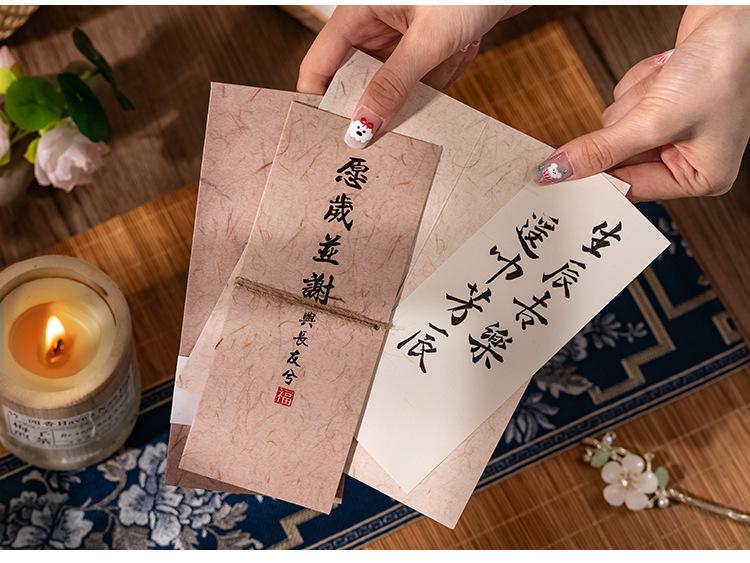 愿歲並謝
與長友兮
福
生辰吉樂
遥叩芳辰